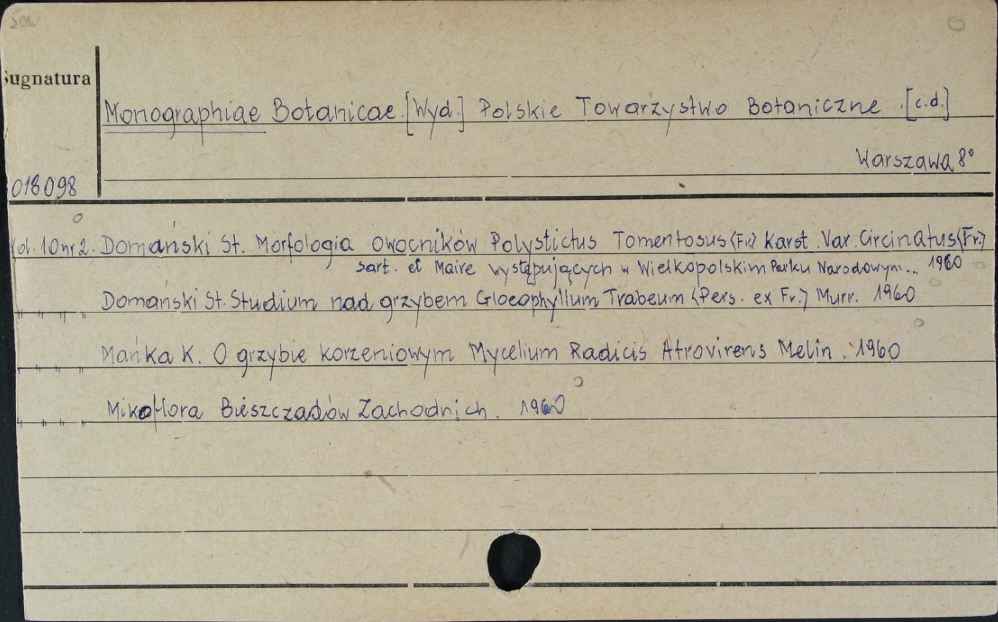 Sugnatura
Monographiae Botanicae. [Wyd.] Polskie Towarzystwo Botaniczne. [c.d.]
Warszawa 8°
018098
Vol. 10 nr 2. Domański St. Morfologia owocników Polystictus Tomentosus (Fr.) Karst. Var. Circinatus (Fr.)
sart. et Maire występujących w Wielkopolskim Parku Narodowym... 1960
" " " Domański St. Studium nad grzybem Gloeophyllum Trabeum (Pers. ex Fr.) Murr. 1960
" " " Mańka K. O grzybie korzeniowym Mycelium Radicis Atrovirens Melin. 1960
" " " Mikoflora Bieszczadów Zachodnich. 1960